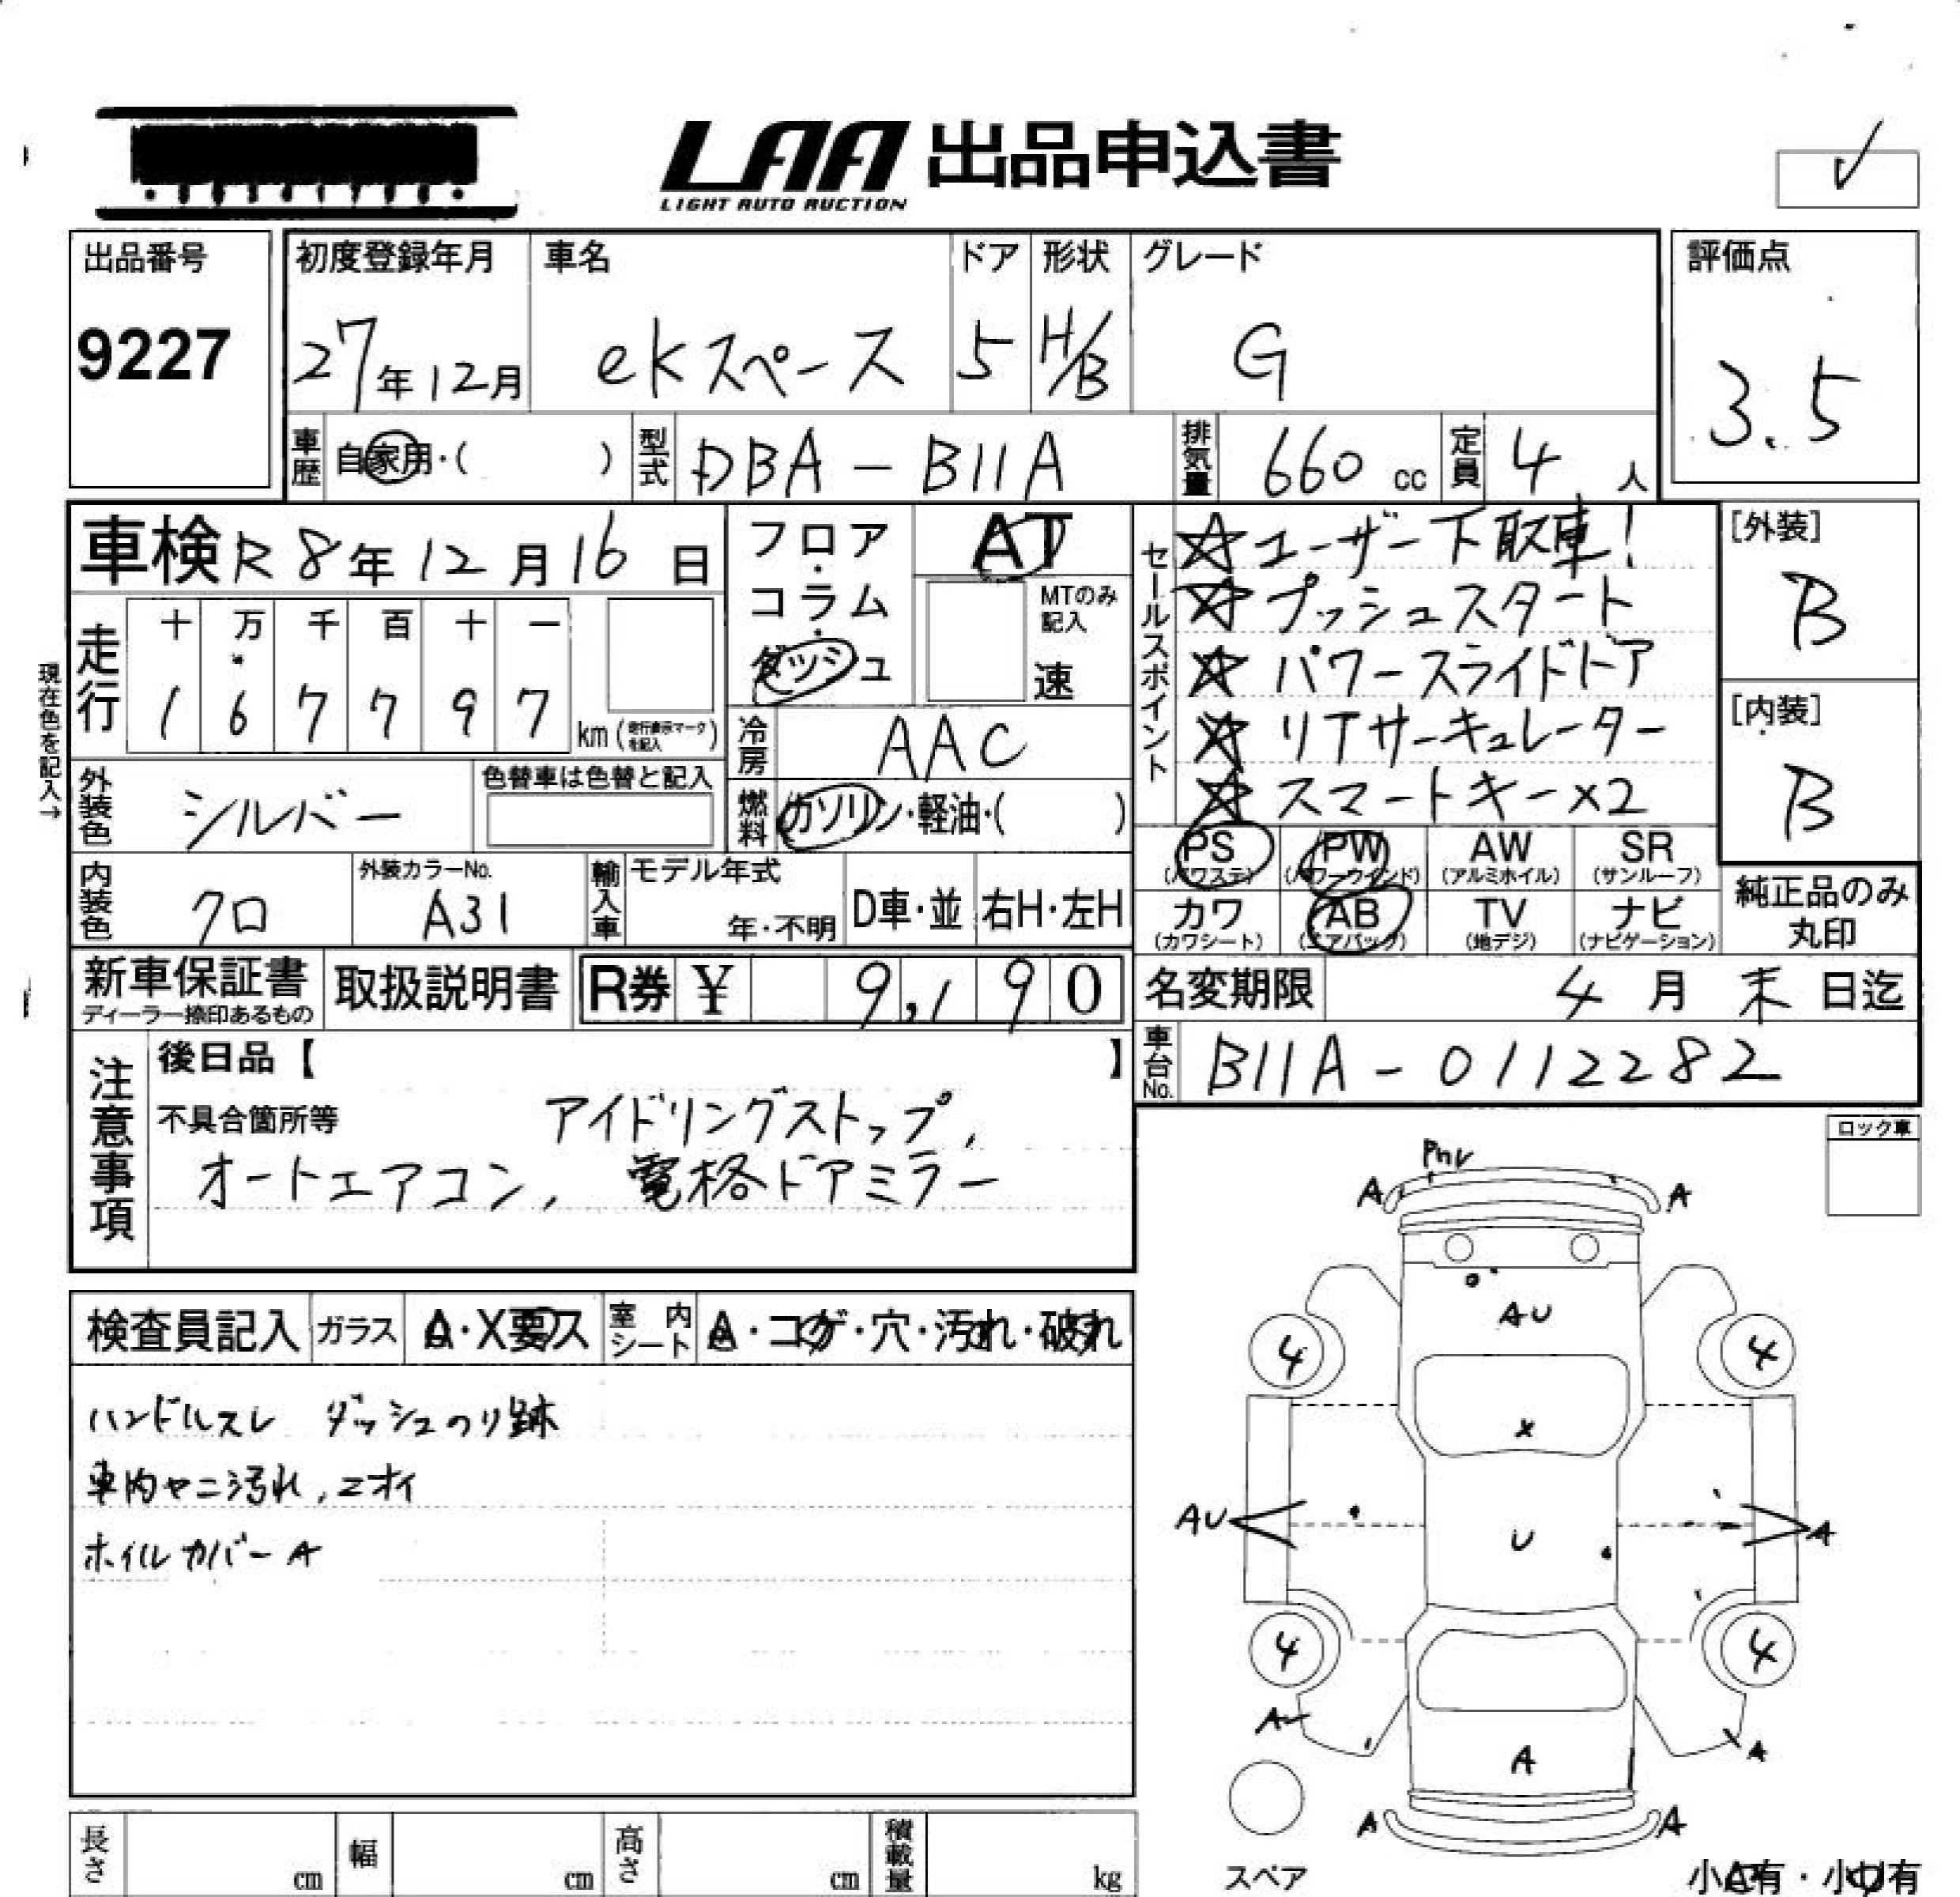 LAA 出品申込書
LIGHT AUTO AUCTION
出品番号
9227
初度登録年月
27年12月
車名
ekスペース
ドア
5
形状
H/B
グレード
G
評価点
3.5
車歴 自家用・( )
型式 DBA-B11A
排気量 660 cc
定員 4 人
車検 R8年12月16日
フロア・コラム・ダッシュ
AT
MTのみ記入
速
現在色を記入→
走行
十 万 千 百 十 一
1 6 7 7 9 7
km (走行表示マークを記入)
冷房 AAC
外装色 シルバー
色替車は色替と記入
燃料 ガソリン・軽油・( )
内装色 クロ
外装カラーNo.
A31
輸入車
モデル年式
年・不明
D車・並
右H・左H
セールスポイント
☆ユーザー下取車!
☆プッシュスタート
☆パワースライドドア
☆リアサーキュレーター
☆スマートキー×2
[外装]
B
[内装]
B
PS (パワステ)
PW (パワーウインド)
AW (アルミホイル)
SR (サンルーフ)
カワ (カワシート)
AB (エアバッグ)
TV (地デジ)
ナビ (ナビゲーション)
純正品のみ丸印
新車保証書
ディーラー捺印あるもの
取扱説明書
R券 ¥ 9,190
名変期限 4月末日迄
車台No. B11A-0112282
注意事項
後日品【 】
不具合箇所等 アイドリングストップ,
オートエアコン, 電格ドアミラー
ロック車
検査員記入
ガラス A・X要ス
室内シート A・コゲ・穴・汚れ・破れ
ハンドルスレ ダッシュのり跡
車内ヤニ汚れ,ニオイ
ホイルカバーA
A A
AU
4 4
X
AU U A
4 4
A A
A
A A
スペア
小A有・小U有
長さ cm
幅 cm
高さ cm
積載量 kg